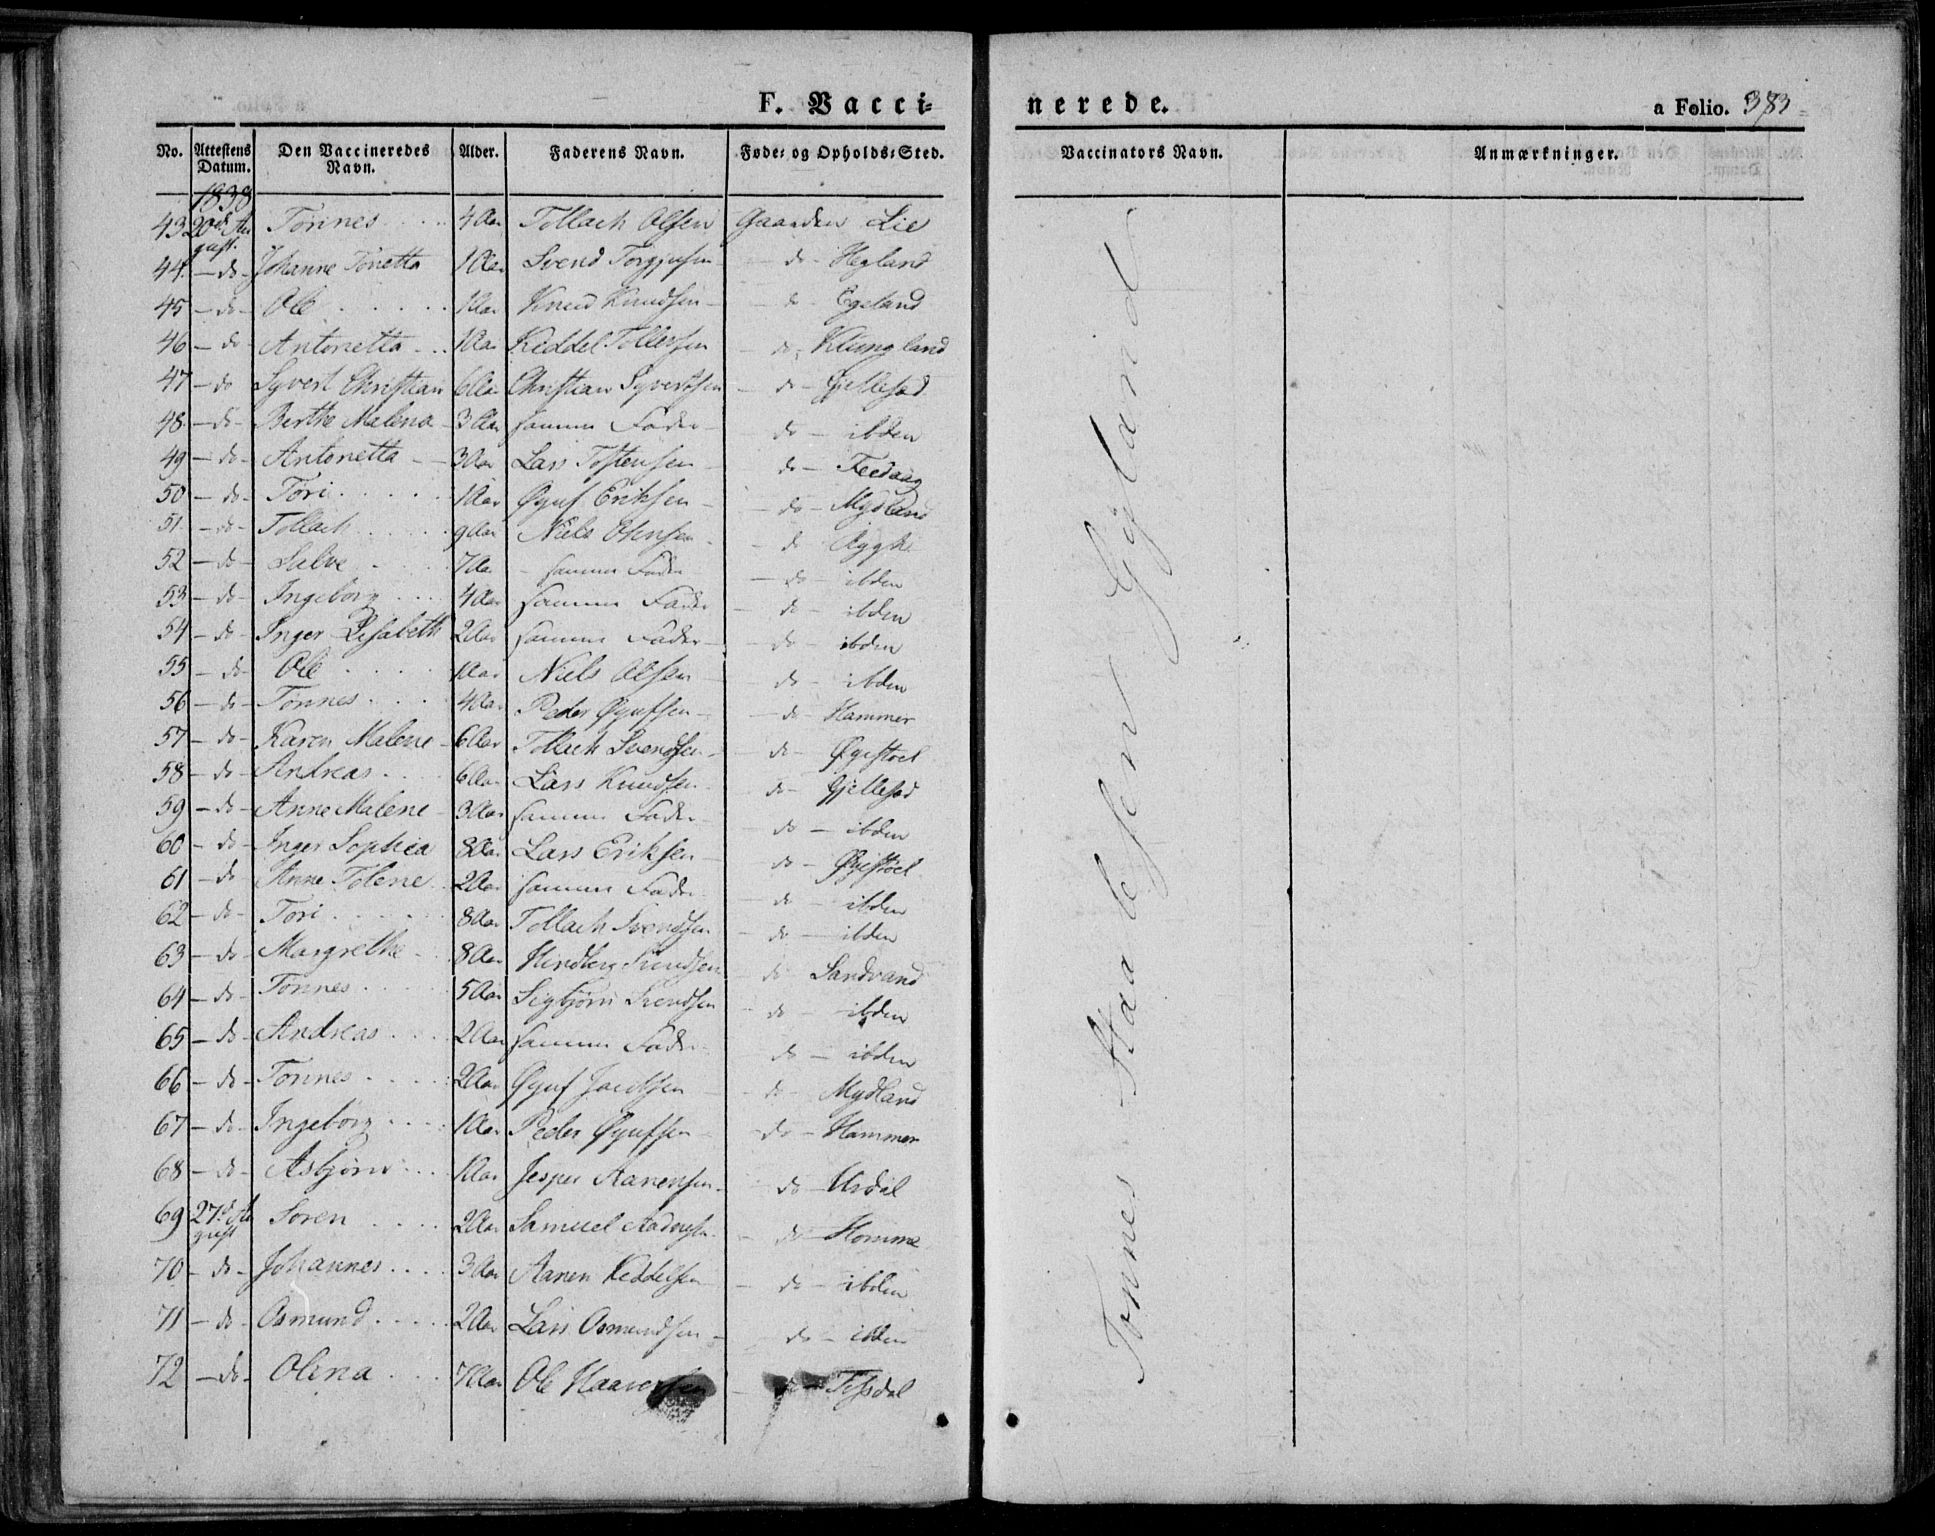 F. Vacci=
nerede.
a Folio. 383
No. Attestens Datum. Den Vaccineredes Navn. Alder. Faderens Navn. Føde= og Opholds=Sted. Vaccinators Navn. Anmærkninger.
1838
43 20de Au gust. Tönnes 4 Aar Tollach Olsen Gaarden Lie
44 - do - Johanne Tonetta 1 Aar Svend Torgjusen - do - Hegland
45 - do - Ole 1 Aar Knud Knudsen - do - Egeland
46 - do Antonetta 1 Aar Keddel Tollefsen - do - Klungland
47 - do Syvert Christian 6 Aar Christian Syvertsen - do - Gjellesad
48 - do - Berthe Malena 3 Aar samme Fader - do - ibden
49 - do - Antonetta 3 Aar Lars Tostensen - do - Feedaag
50 - do - Tori 1 Aar Øyuf Eriksen - do - Mydland
51 - do - Tollach 9 Aar Niels Olensen - do Rygh
52 - do - Salve 7 Aar - samme Fader - do - ibden
53 - do - Ingeborg 4 Aar samme Fader - do - ibden
54 - do - Inger Lisabeth 2 Aar samme Fader - do - ibden
55 - do - Ole 1 Aar Niels Olsen - do - ibden
56 - do - Tönnes 4 Aar Peder Øyufsen - do - Hammer
57 - do - Karen Malene 6 Aar Tollach Svendsen - do - Øgistoel
58 - do - Andreas 6 Aar Lars Knudsen - do - Gjellesad
59 - do - Anne Malene 3 Aar samme Fader - do - ibden
60 - do - Inger Sophia 8 Aar Lars Eriksen - do - Øgistoel
61 - do Anne Tolene 2 Aar samme Fader - do - ibden
62 - do - Tori 8 Aar Tollach Svendsen - do - ibden
63 - do - Margrethe 8 Aar Svendsen - do Sandvand
64 - do - Tönnes 5 Aar Sigbjørn Svendsen - do - ibden
65 - do - Andreas 2 Aar samme Fader - do - ibden
66 - do - Tönnes 2 Aar Øyuf Jacobsen - do - Mydland
67 - do - Ingeborg 1 Aar Peder Øyufsen - do - Hammer
68 - do - Asbjørn 1 Aar Jesper Aanensen - do - Urdal
69 27de Au gust Soren 2 Aar Samuel Aadnesen - do - Homme
70 - do - Johannes 3 Aar Aanen Keddelsen - do - ibden
71 - do - Osmund 2 Aar Lars Osmundsen - do - ibden
72 - do - Olena 7 Aar Ole Haaversen - do - Tesdal
Tönnes Staalesen Gyland